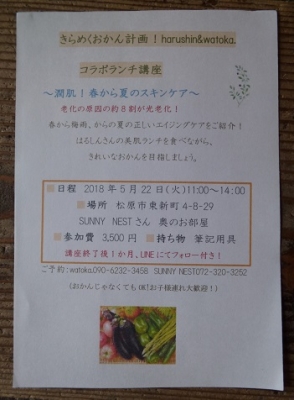 きらめくおかん計画！harushin&watoka.
コラボランチ講座
～潤肌！春から夏のスキンケア～
老化の原因の約８割が光老化！
春から梅雨、からの夏の正しいエイジングケアをご紹介！
はるしんさんの美肌ランチを食べながら、
きれいなおかんを目指しましょう。
■日程 2018年５月22日(火)11:00～14:00
■場所 松原市東新町4-8-29
SUNNY NESTさん 奥のお部屋
■参加費 3,500円 ■持ち物 筆記用具
講座終了後１か月、LINEにてフォロー付き！
ご予約：watoka.090-6232-3458 SUNNY NEST072-320-3252
(おかんじゃなくてもOK！お子様連れ大歓迎！)